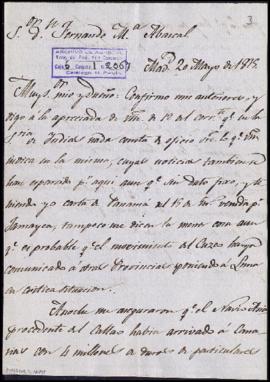 S.r D.n Fernando M.a Abascal
3
Mad.d 20 Mayo de 1815
Muy S.or mio y Dueño: Confirmo mis anteriores y
digo á la apreciada de vm. de 10 del corr.te q.e en la
de Indias nada consta de oficio
indica en la misma, cuyas noticias tambien se
han esparcido p.r aqui aun q.e sin dato fixo, y te-
niendo yo carta de Panamá del
Jamayca, tampoco me dicen la menor cosa aun
q.e es probable q.e el movimiento del Cuzco haya
comunicado á otras Provincias poniendo á Lima
en critica situacion.
Anoche me aseguraron q.e el Navio Asia
procedente del Callao habia arrivado á Cana-
rias con 4 millones de duros de particulares